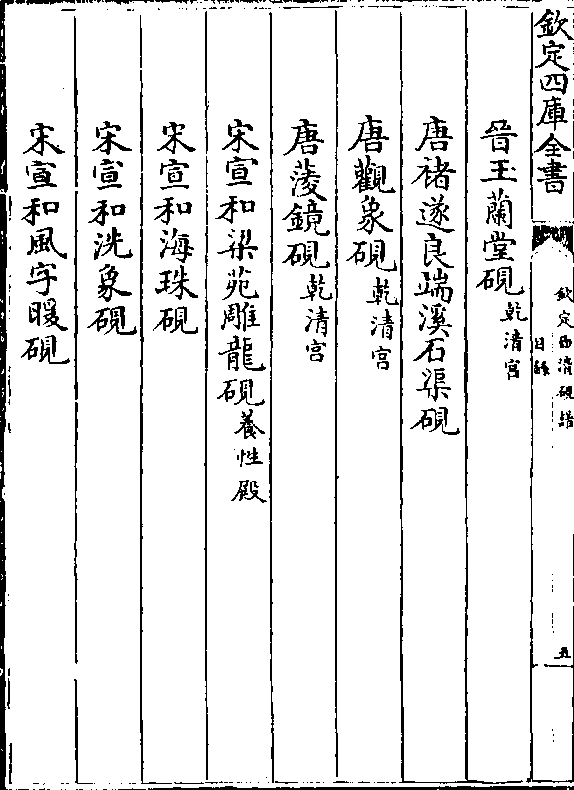 欽定四庫全書
欽定西清硯譜
目錄
五
晉玉蘭堂硯 乾清宮
唐褚遂良端溪石渠硯
唐觀象硯 乾清宮
唐菱鏡硯 乾清宮
宋宣和梁苑雕龍硯 養性殿
宋宣和海珠硯
宋宣和洗象硯
宋宣和風字暖硯